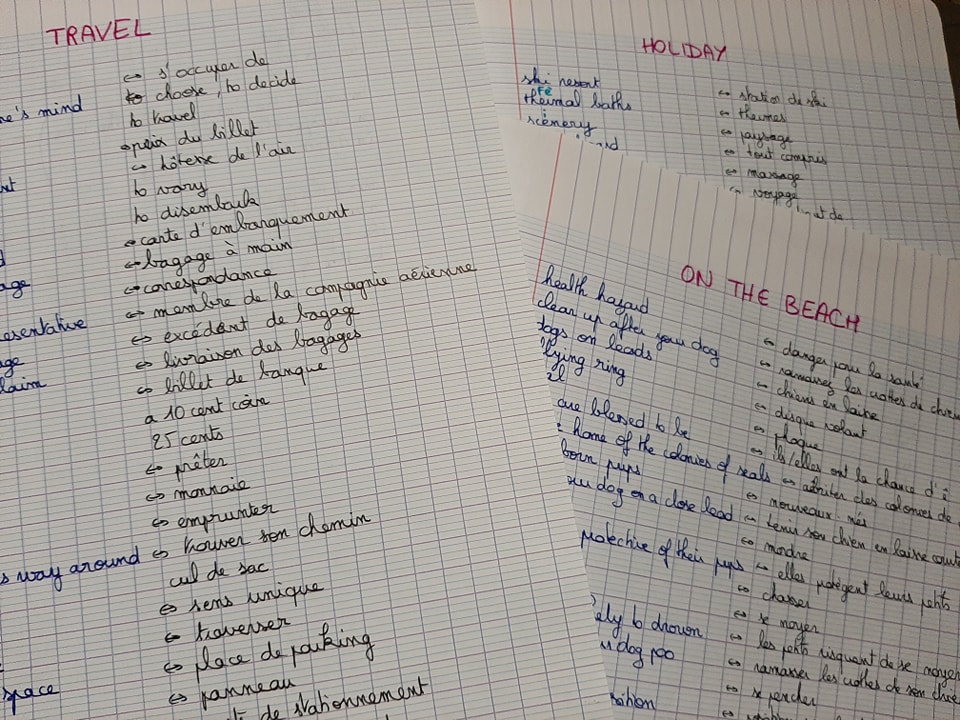 TRAVEL
↔ s'occuper de
ne's mind to choose, to decide
to travel
↔ prix du billet
↔ hôtesse de l'air
to vary
to disembark
↔ carte d'embarquement
↔ bagage à main
age ↔ correspondance
↔ membre de la compagnie aérienne
esentative ↔ excédent de bagage
age ↔ livraison des bagages
laim ↔ billet de banque
a 10 cent coin
25 cents
↔ prêter
↔ monnaie
↔ emprunter
s way around ↔ trouver son chemin
cul de sac
↔ sens unique
↔ traverser
↔ place de parking
space ↔ panneau
de stationnement
HOLIDAY
ski resort ↔ station de ski
thermal baths ↔ thermes
scénery ↔ paysage
↔ tout compris
↔ massage
↔ voyage
ON THE BEACH
health hazard ↔ danger pour la santé
clean up after your dog ↔ ramassez les crottes de chien
dogs on leads ↔ chiens en laisse
flying ring ↔ disque volant
↔ phoque
are blessed to be ↔ ils/elles ont la chance d'ê
home of the colonies of seals ↔ abriter des colonies de
born pups ↔ nouveaux-nés
dog on a close lead ↔ tenir son chien en laisse courte
↔ mordre
protective of their pups ↔ elles protègent leurs petits
↔ chasser
↔ se noyer
ely to drown ↔ les petits risquent de se noyer
dog poo ↔ ramasser les crottes de son chie
↔ se percher